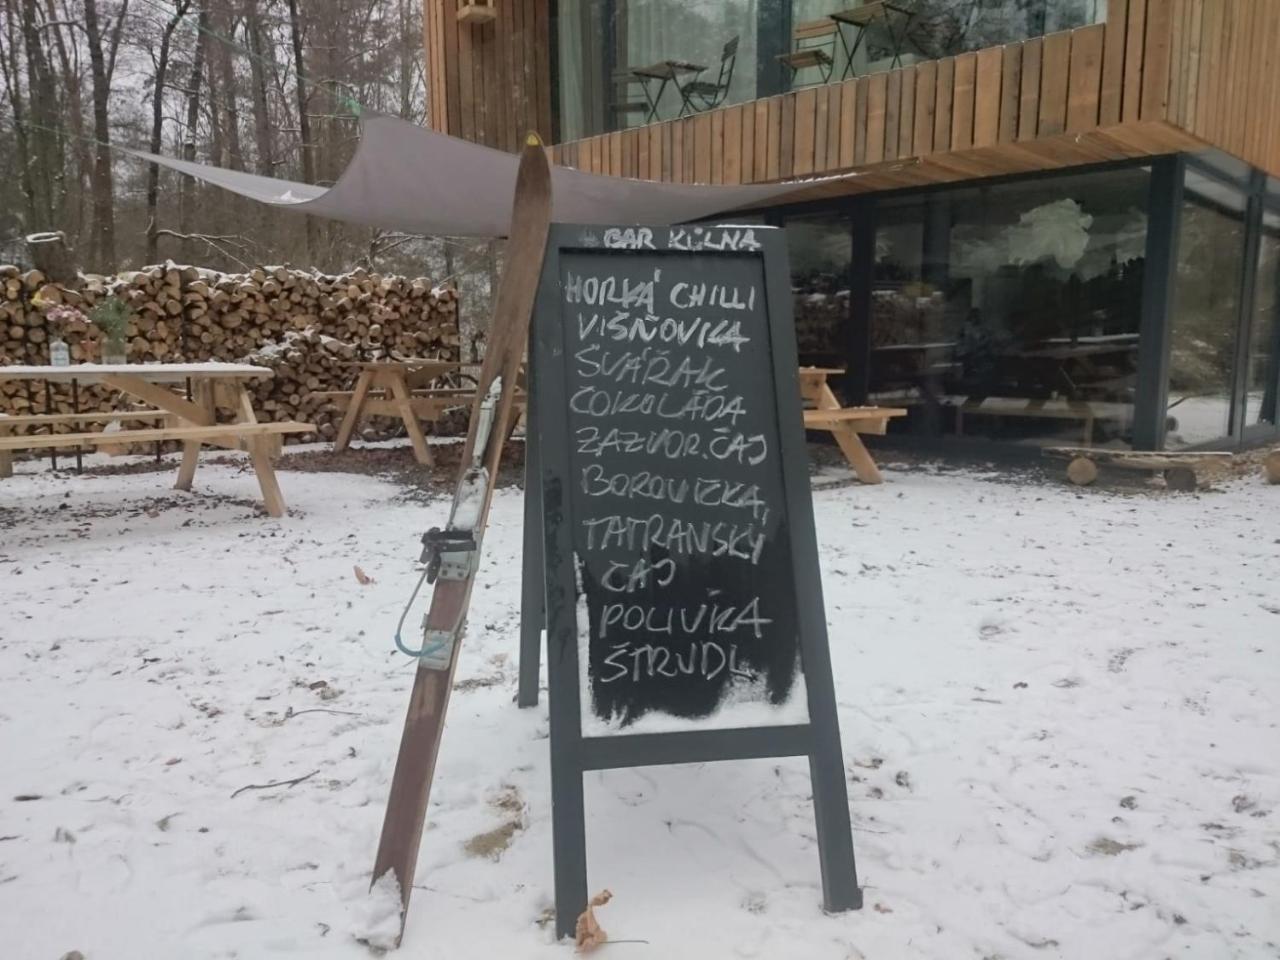 BAR KŮLNA
HORKÁ CHILLI
VIŠŇOVKA
SVAŘÁK
ČOKOLÁDA
ZÁZVOR. ČAJ
BOROVIČKA,
TATRANSKÝ
ČAJ
POLIVÍKA
ŠTRUDL